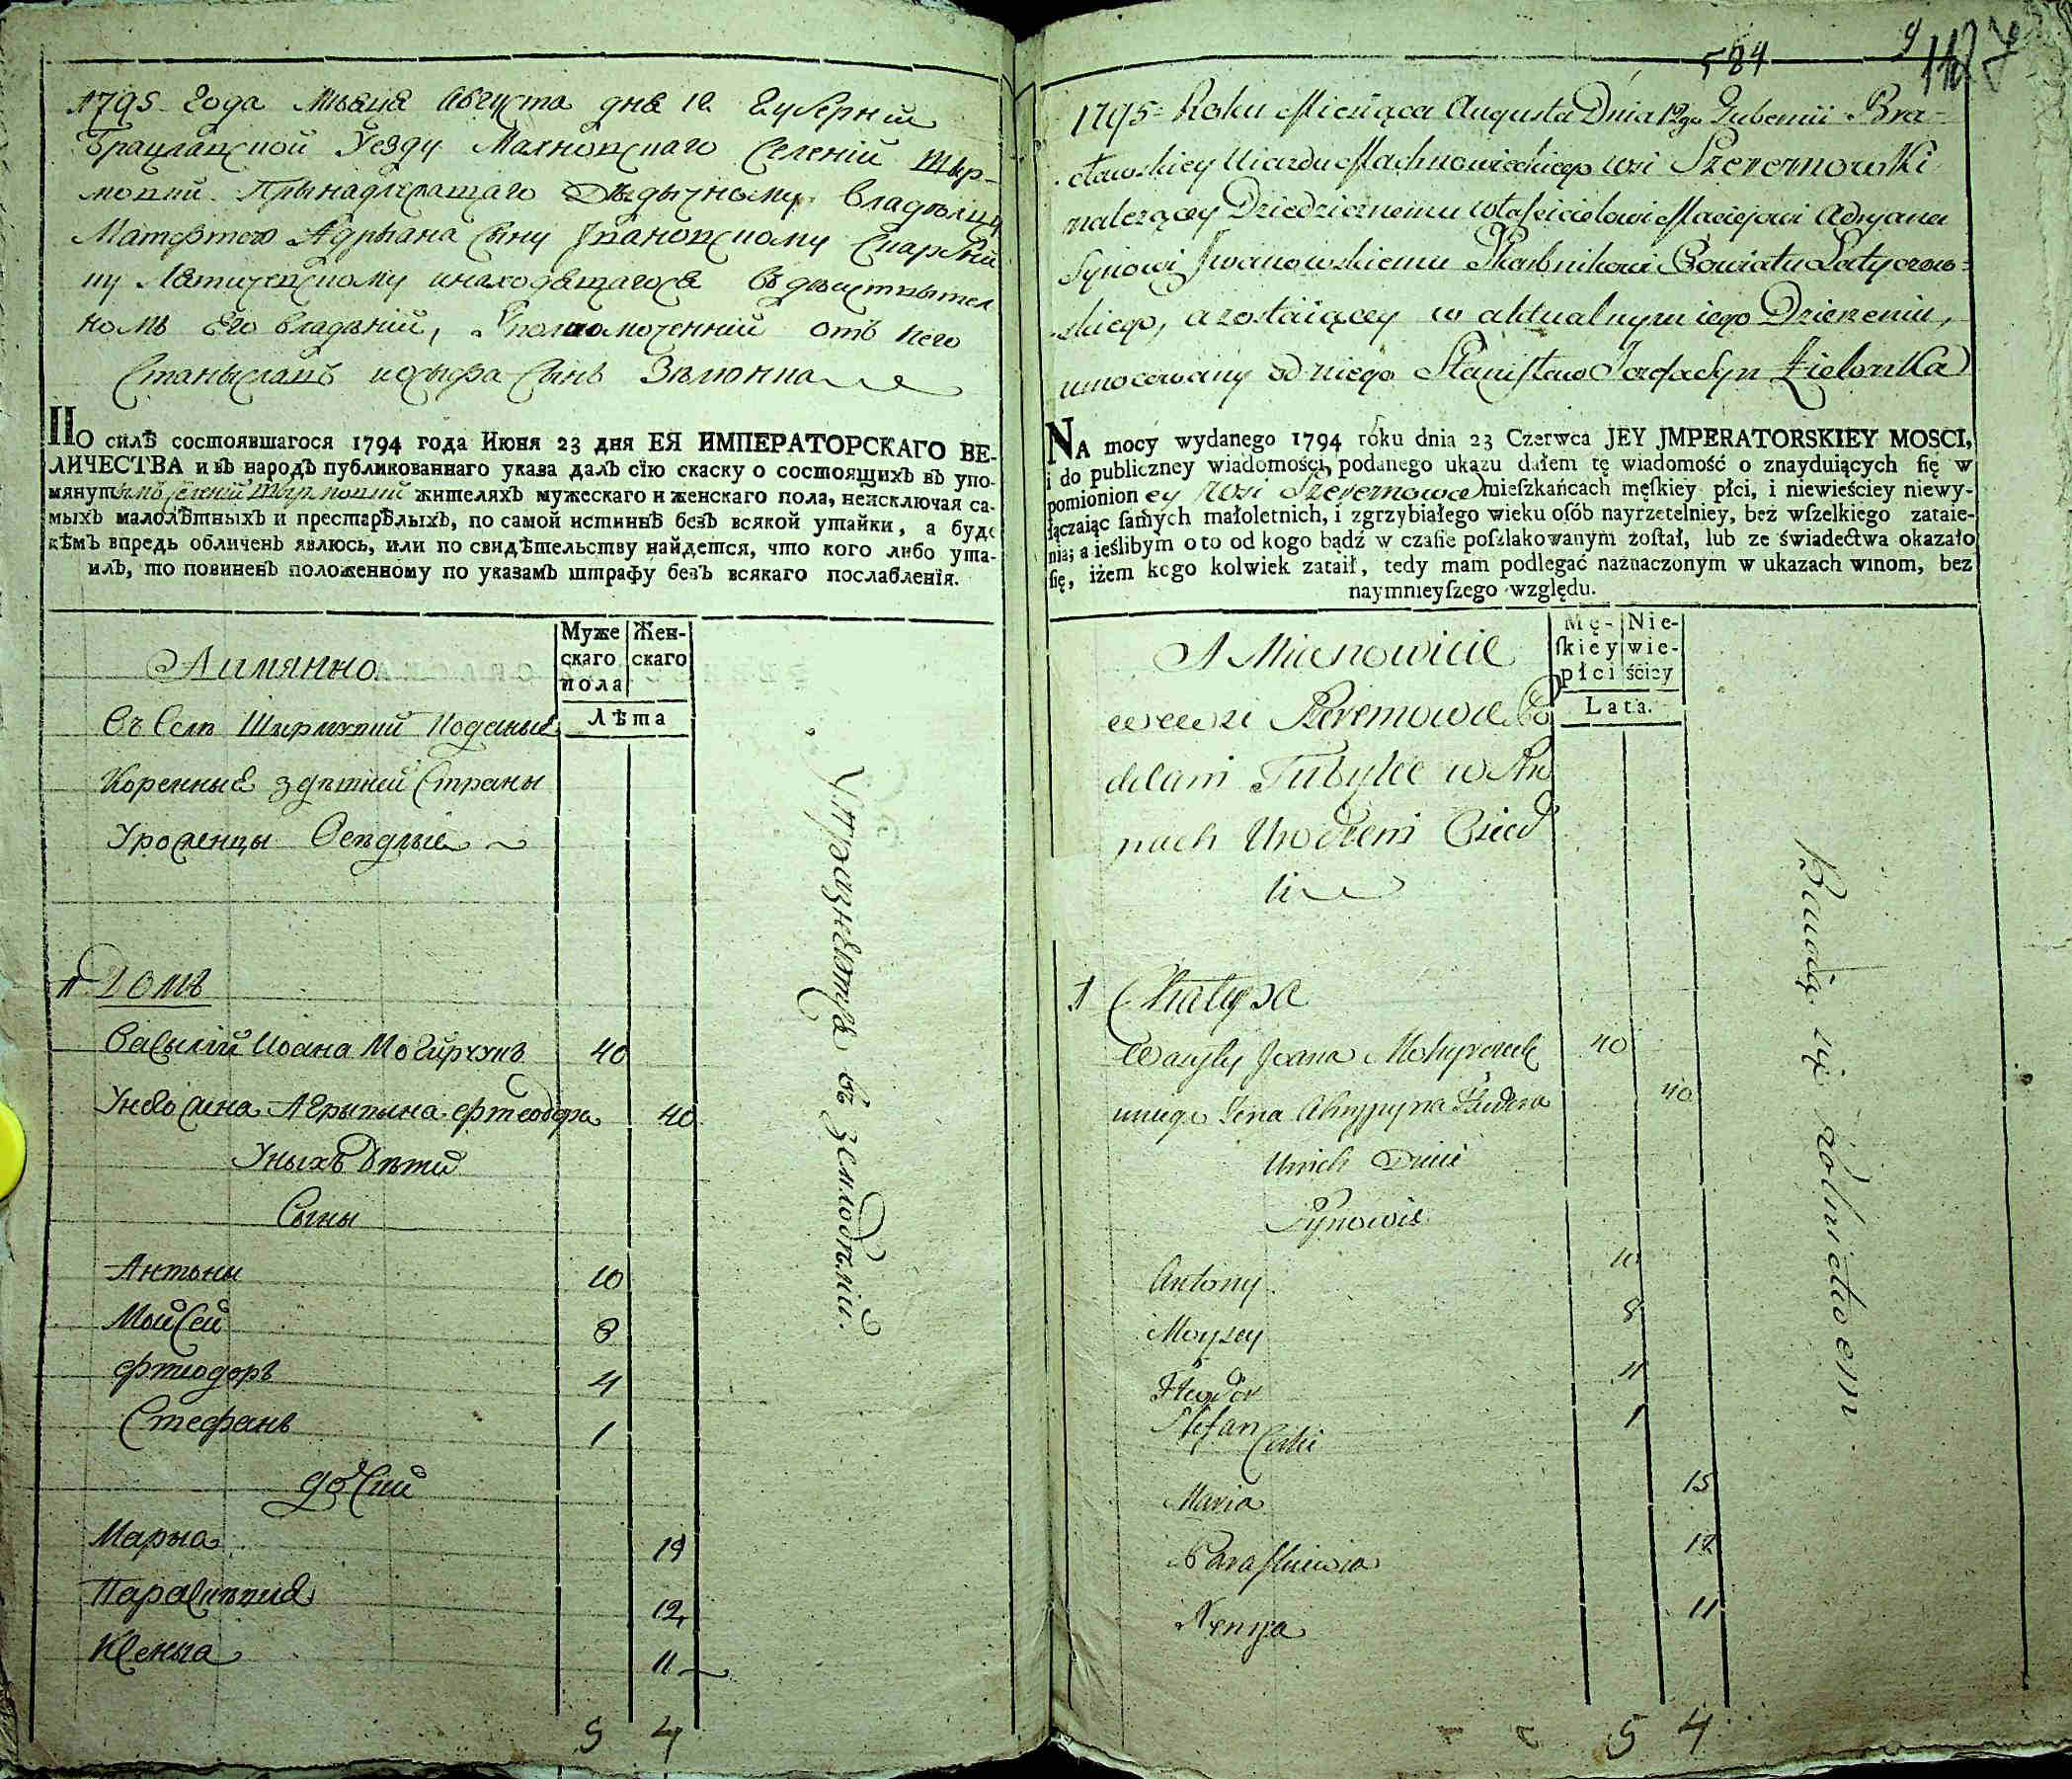 1795 Года Мѣсяца Августа дня 12. Губерніи
Брацлавской Уезду Махновскаго Селенія Шыр-
мовки Прынадлежащаго Дѣдычному Владѣлцу
Матфѣю Адрыана Сыну Ивановскому Скарбни
ку Лятичевскому и находящагося въ дѣиствытел
номъ Его владѣніи, Уполномоченній отъ него
Станыславъ иосыфа Сынъ Зѣлюнка
По силѣ состоявшагося 1794 года Июня 23 дня ЕЯ ИМПЕРАТОРСКАГО ВЕ-
ЛИЧЕСТВА и въ народъ публикованнаго указа далъ сїю скаску о состоящихъ въ упо-
мянутомъ селеніи Шырмовки жителяхъ мужескаго и женскаго пола, неисключая са-
мыхъ малолѣтныхъ и престарѣлыхъ, по самой истиннѣ безъ всякой утайки, а буде
кѣмъ впредь обличенъ явлюсь, или по свидѣтельству найдется, что кого либо ута-
илъ, то повиненъ положенному по указамъ штрафу безъ всякаго послабленїя.
Муже скаго пола
Жен- скаго
Аимянно
Лѣта
Въ Селѣ Шырмовки Поданые
Коренные здѣшнеи Страны
Уроженцы Осѣдлые
1 Домъ
Васылій Иоана Могирчукъ 40
Унего жена Агрыпына Фтеодора 40
Уныхъ Дѣти
Сыны
Антоны 10
Мойсей 8
Фтеодоръ 4
Стефанъ 1
дочки
Марыа 15
Параскѣвия 12
Ксеныа 11
5 4
Упражняются въ земледѣліи.
584
1795 Roku Miesiąca Augusta Dnia 12go Gubernii Bra-
cławskiey Uiazdu Machnowieckiego Wsi Szeremowki
należącey Dziedzicznemu właścicielowi Maciejowi Adryana
Synowi Jwanowskiemu Skarbnikowi Powiatu Latyczew-
skiego, a zostaiącey w aktualnym iego Dzierżeniu,
umocowany od niego Stanisław Jozefa Syn Zielonka
NA mocy wydanego 1794 roku dnia 23 Czerwca JEY JMPERATORSKIEY MOSCI,
i do publiczney wiadomości, podanego ukazu dałem tę wiadomość o znayduiących ſię w
pomionion ey Wsi Szeremowce mieſzkańcach męſkiey płci, i niewieściey niewy-
łączaiąc ſamych małoletnich, i zgrzybiałego wieku oſób nayrzetelniey, bez wſzelkiego zataie-
nia; a ieślibym o to od kogo bądź w czaſie poſzlakowanym zoſtał, lub ze świadectwa okazało
ſię, iżem kogo kolwiek zataił, tedy mam podlegać naznaczonym w ukazach winom, bez
naymnieyſzego względu.
Mę- ſkiey płci
Nie- wie- ściey
A Mienowicie
Lata.
we wsi Szeremowce Po
ddani Tubylce w
nach Urodzeni Osied
li
1 Chałupa
Wasyly Jwana Mohyrczuk 40
u niego Żena Ahrypyna Fteodora 40
Unich Dzieci
Synowie
Antony 10
Moysey 8
Fteodor 4
Stefan 1
Corki
Maria 15
Paraskiewia 12
Xenya 11
5 4
Bawią się rolnictwem